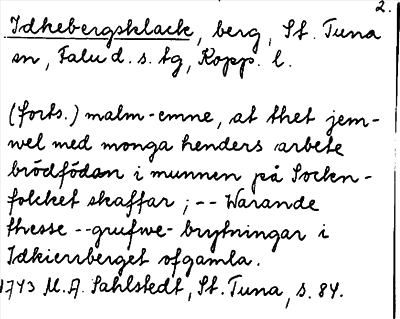 2.
Idkebergsklack, berg, St. Tuna
sn, Falu d. s. tg, Kopp. l.
(forts.) malm-emne, at thet jem-
wel med monga henders arbete
brödfödan i munnen på Socken-
folcket skaffar; -- Warande
thesse -- grufwe-brytningar i
Idkierrberget ofgamla.
1743 M.A. Sahlstedt, St. Tuna, s. 84.